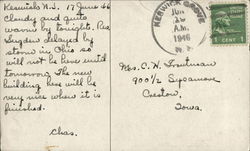 Keswick N.J. 17 June 46
Cloudy and quite
warm by tonight. Rev.
Snyder delayed by
storm in Ohio so
will not be here until
tomorrow. The new
building here will be
very nice when it is
finished.
Chas.
KESWICK GROVE
JUN
A.M.
1946
N. J.
1 CENT 1
Mrs. C. H. Troutman
900½ Sycamore
Creston,
Iowa.